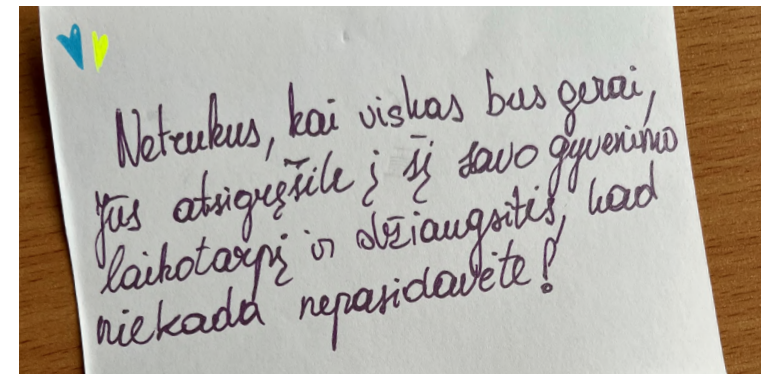 Netrukus, kai viskas bus gerai,
Jūs atsigręšite į šį savo gyvenimo
laikotarpį ir džiaugsitės, kad
niekada nepasidavėte!